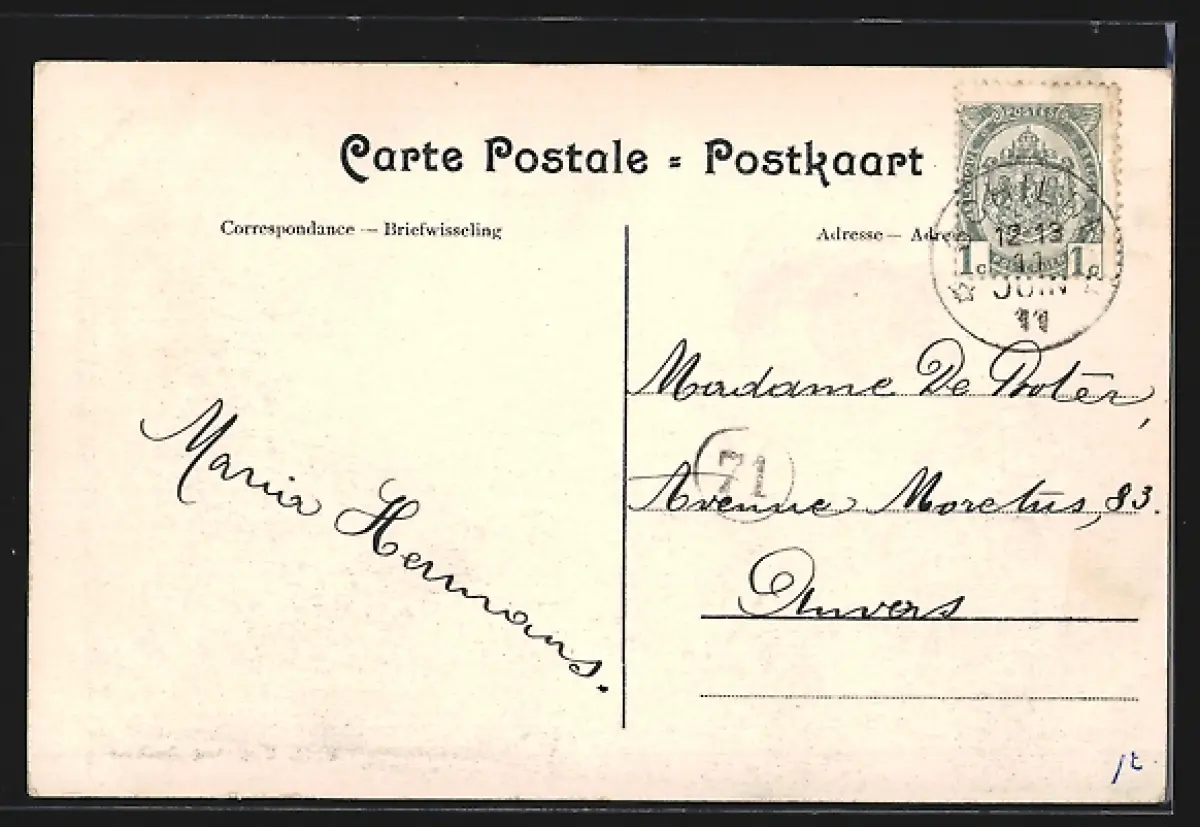 Carte Postale = Postkaart
Correspondance — Briefwisseling
Adresse — Adres
POSTES
1c 1c
12-13
11
JUIN
11
Madame De Poter,
71
Avenue Moretus, 83.
Anvers
Maria Hermans.